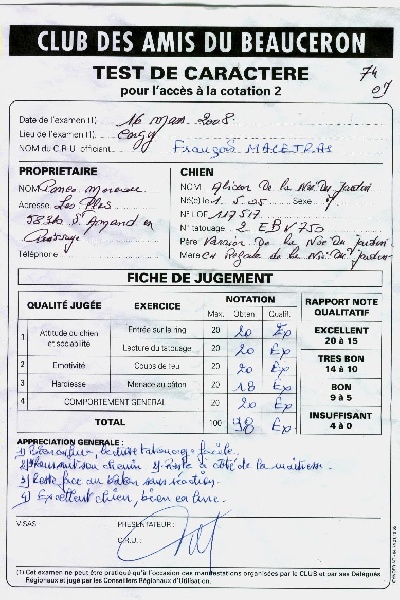 CLUB DES AMIS DU BEAUCERON
TEST DE CARACTERE
pour l'accès à la cotation 2
74
07
Date de l'examen (1) 16 Mars 2008
Lieu de l'examen (1) Cergy
NOM du C.R.U. officient François MACETRAS
PROPRIETAIRE
NOM
Adresse Les Ples
58310 St Amand en
Puisaye
Téléphone
CHIEN
NOM De la Noë Du Jardin
Né(e) le 1.5.05 Sexe
N° LOF 117517
N° tatouage 2 EBV 750
Père De la Noë Du Jardin
Mère CH Royale de la Noë Du Jardin
FICHE DE JUGEMENT
QUALITÉ JUGÉE EXERCICE NOTATION RAPPORT NOTE QUALITATIF
Max. Obten. Qualif.
1 Attitude du chien et sociabilité Entrée sur le ring 20 20 Ex
Lecture du tatouage 20 20 Ex
2 Emotivité Coups de feu 20 20 Ex
3 Hardiesse Menace au bâton 20 18 Ex
4 COMPORTEMENT GENERAL 20 20 Ex
TOTAL 100 98 Ex
EXCELLENT
20 à 15
TRES BON
14 à 10
BON
9 à 5
INSUFFISANT
4 à 0
APPRECIATION GENERALE :
1) lecture tatouage facile.
2) Poursuit son chemin 3) Reste à côté de la maîtresse
3) Reste face au bâton sans réaction.
4) Excellent chien, bien en ligne.
VISAS : PRESENTATEUR :
C.R.U. :
(1) Cet examen ne peut être pratiqué qu'à l'occasion des manifestations organisées par le CLUB et par ses Délégués
Régionaux et jugé par les Conseillers Régionaux d'Utilisation.